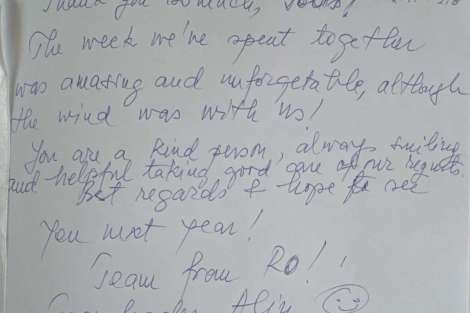 Thank you so much,
The week we've spent together
was amazing and unforgetable, although
the wind was with us!
You are a kind person, always smiling
and helpful taking good care of our requests.
Best regards & hope to see
You next year!
Team from RO!
Alin